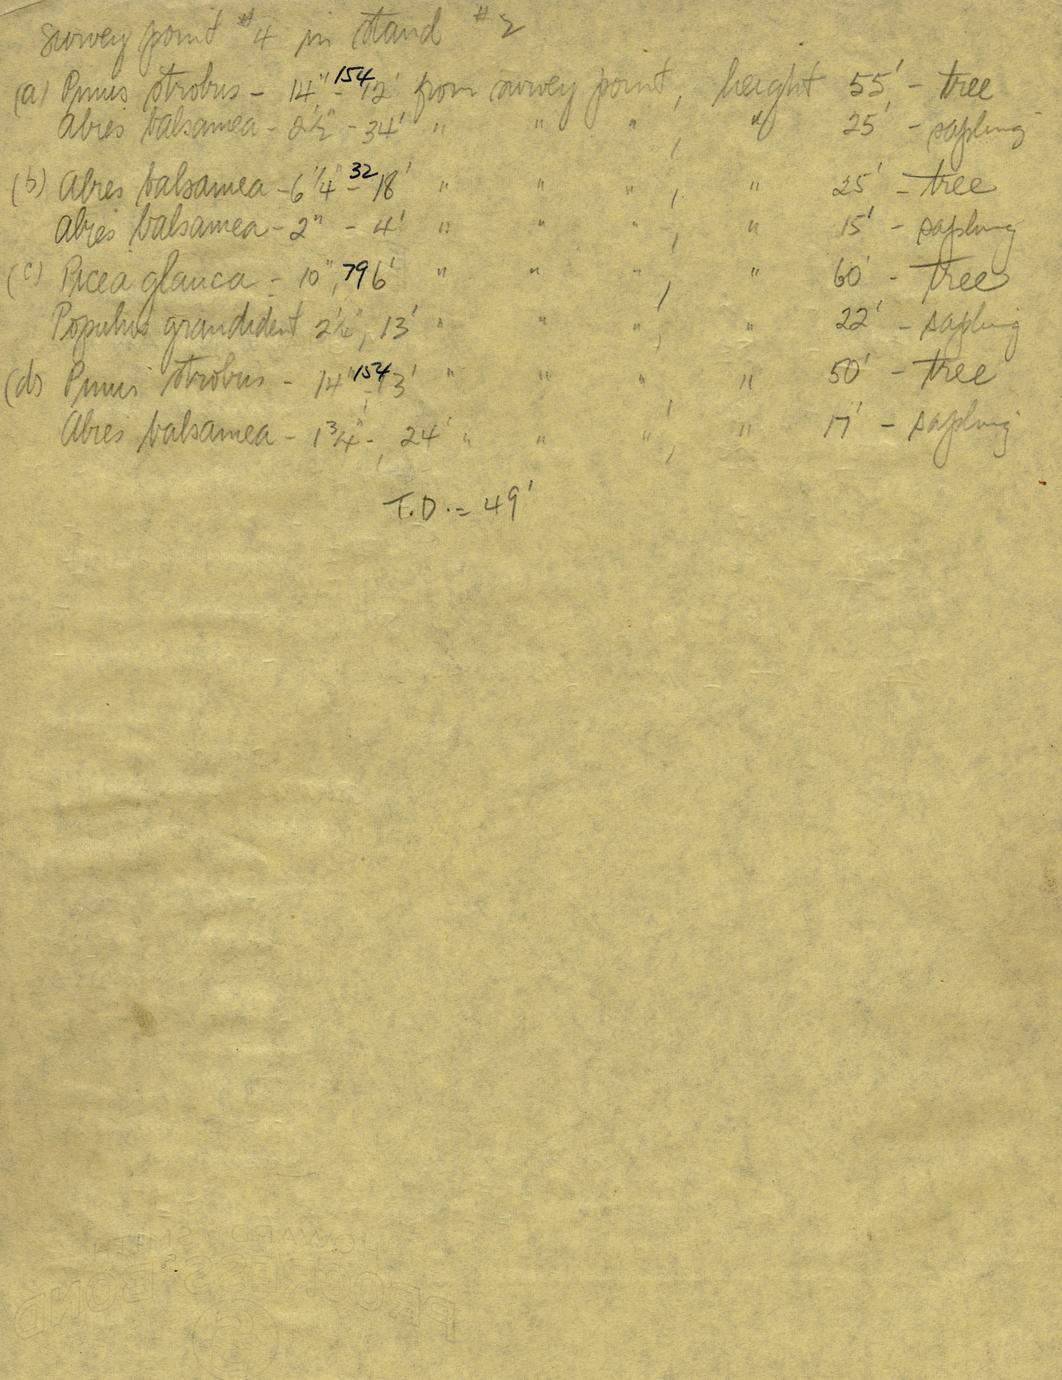 Survey point #4 in stand #2
(a) Pinus strobus - 14", 154 - 12' from survey point, height 55' - tree
Abies balsamea - 2½" - 34' " " " , " 25' - sapling
(b) Abies balsamea - 6¼" 32 - 18' " " " , " 25' - tree
Abies balsamea - 2" - 4' " " " , " 15' - sapling
(c) Picea glauca - 10", 79 6' " " " , " 60' - tree
Populus grandident 2½", 13' " " " , " 22' - sapling
(d) Pinus strobus - 14" 154 - 13' " " " , " 50' - tree
Abies balsamea - 1¾" - 24' " " " , " 17' - sapling
T.D. = 49'
HOWARD SMITH
PROGRESS BOND